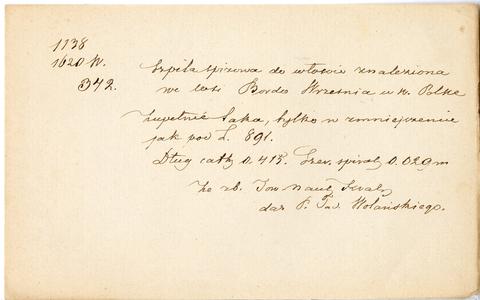 1138
1620 W.
342.
Szpila spirowa do włosów znaleziona
we wsi Bordo Września w W. Polsce
zupełnie taka, tylko w zmniejszeniu
jak pod L. 891.
Dług całk. 0.413. Szer. spiral 0.029 m
Ze zb. Tow nauk
dar P. Tad. Wolańskiego.